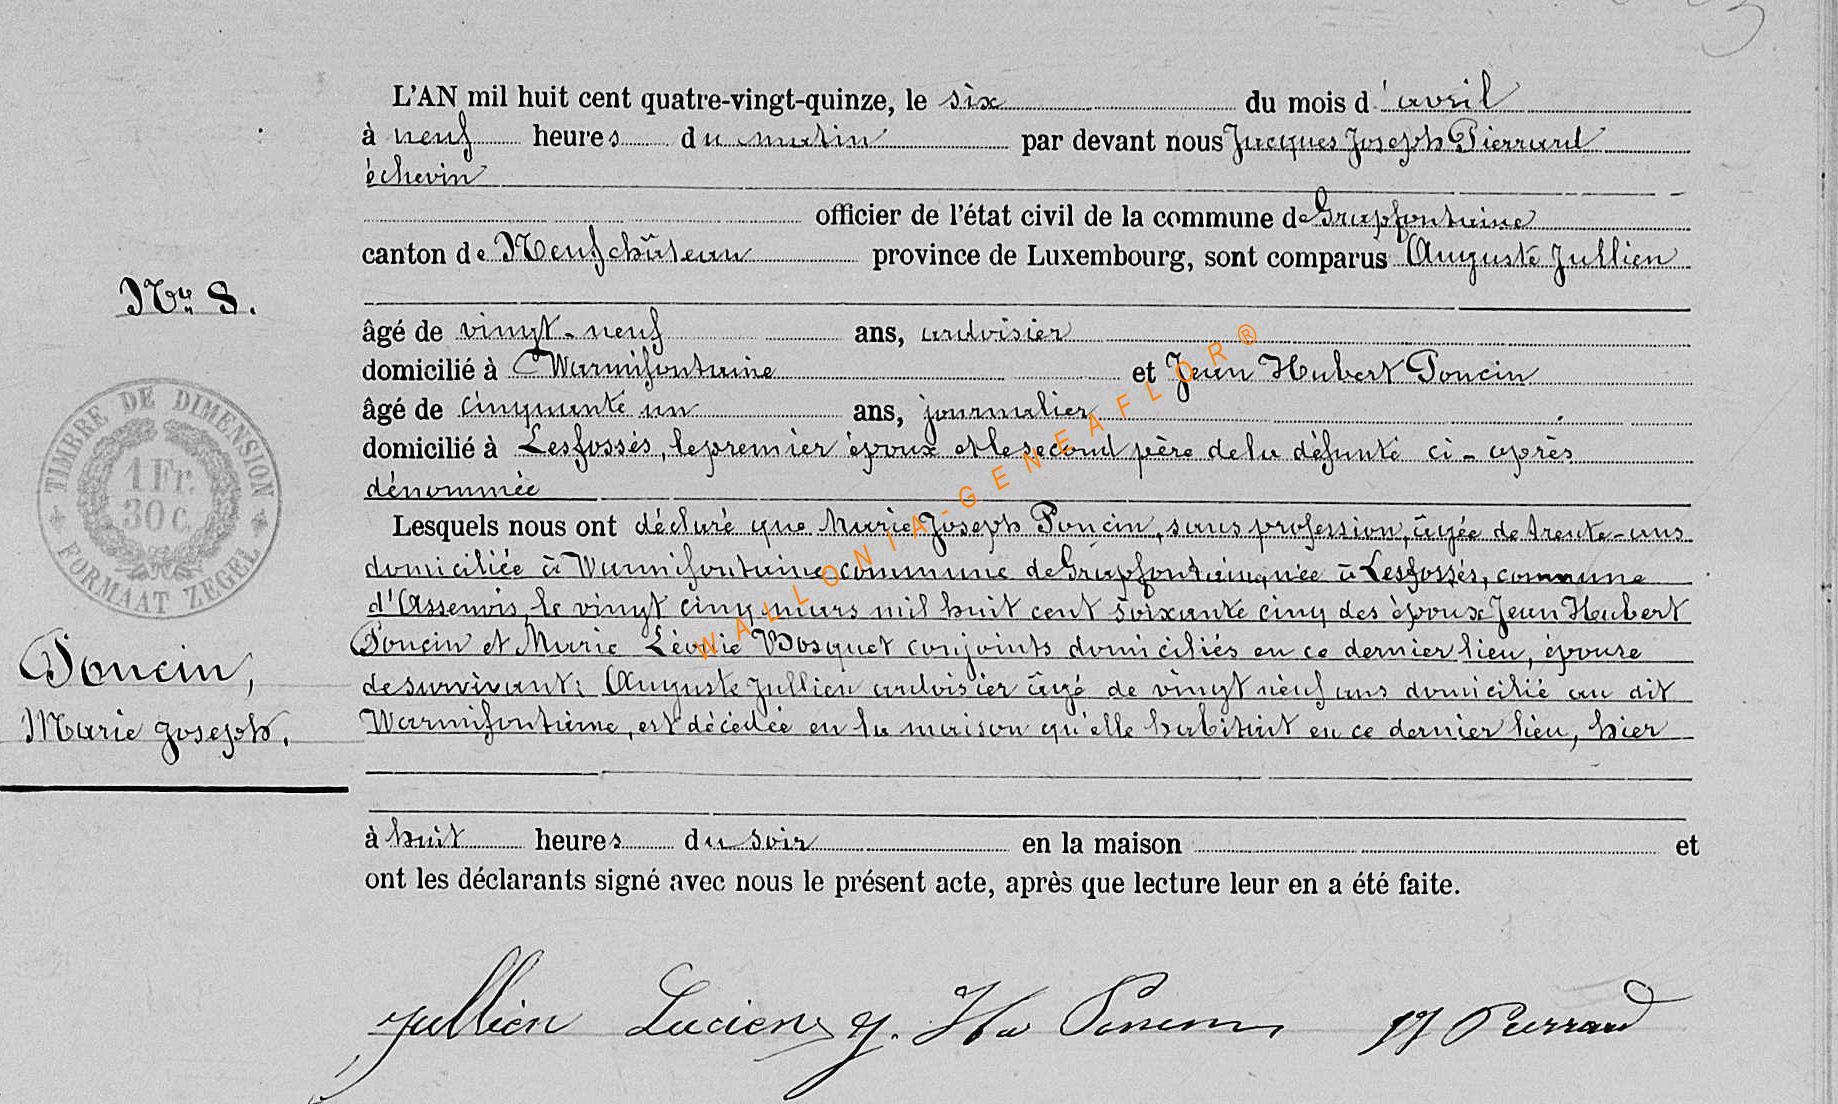 L'AN mil huit cent quatre-vingt-quinze, le six du mois d'avril
à neuf heures du matin par devant nous Jacques Joseph Pierrard
échevin
officier de l'état civil de la commune de Grapfontaine
canton de Neufchâteau province de Luxembourg, sont comparus Auguste Jullien
Nro 8.
âgé de vingt-neuf ans, ardoisier
domicilié à Warmifontaine et Jean Hubert Poncin
âgé de cinquante un ans, journalier
domicilié à Lesfossés, le premier époux et le second père de la défunte ci-après
dénommée
TIMBRE DE DIMENSION
1 Fr.
30 c.
FORMAAT ZEGEL
Lesquels nous ont déclaré que Marie Joseph Poncin, sans profession, âgée de trente-ans
domiciliée à Warmifontaine commune de Grapfontaine, née à Lesfossés, commune
d'Assenois, le vingt cinq mars mil huit cent soixante cinq des époux Jean Hubert
Poncin et Marie Léonie Bosquet conjoints domiciliés en ce dernier lieu, épouse
de survivant: Auguste Jullien ardoisier âgé de vingt neuf ans domicilié au dit
Warmifontaine, est décédée en la maison qu'elle habitait en ce dernier lieu, hier
Poncin,
Marie Joseph.
à huit heures du soir en la maison et
ont les déclarants signé avec nous le présent acte, après que lecture leur en a été faite.
Jullien Lucien J. Hu Poncin JJ Pierrard
WALLONIA-GENEAFLOR®